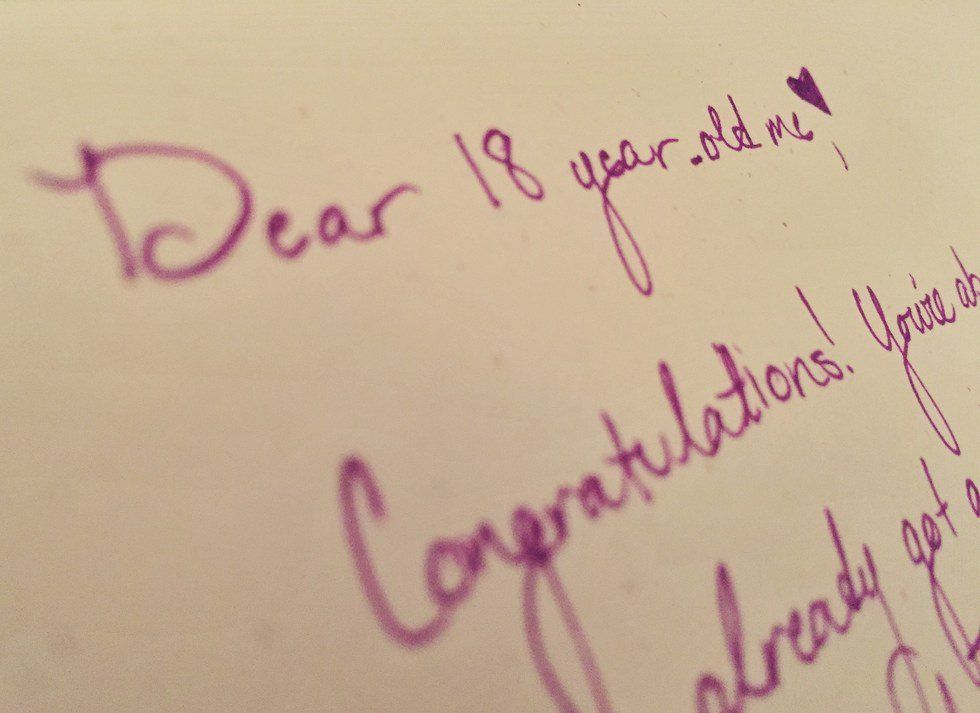 Dear 18 year-old me,
Congratulations! You're
already got